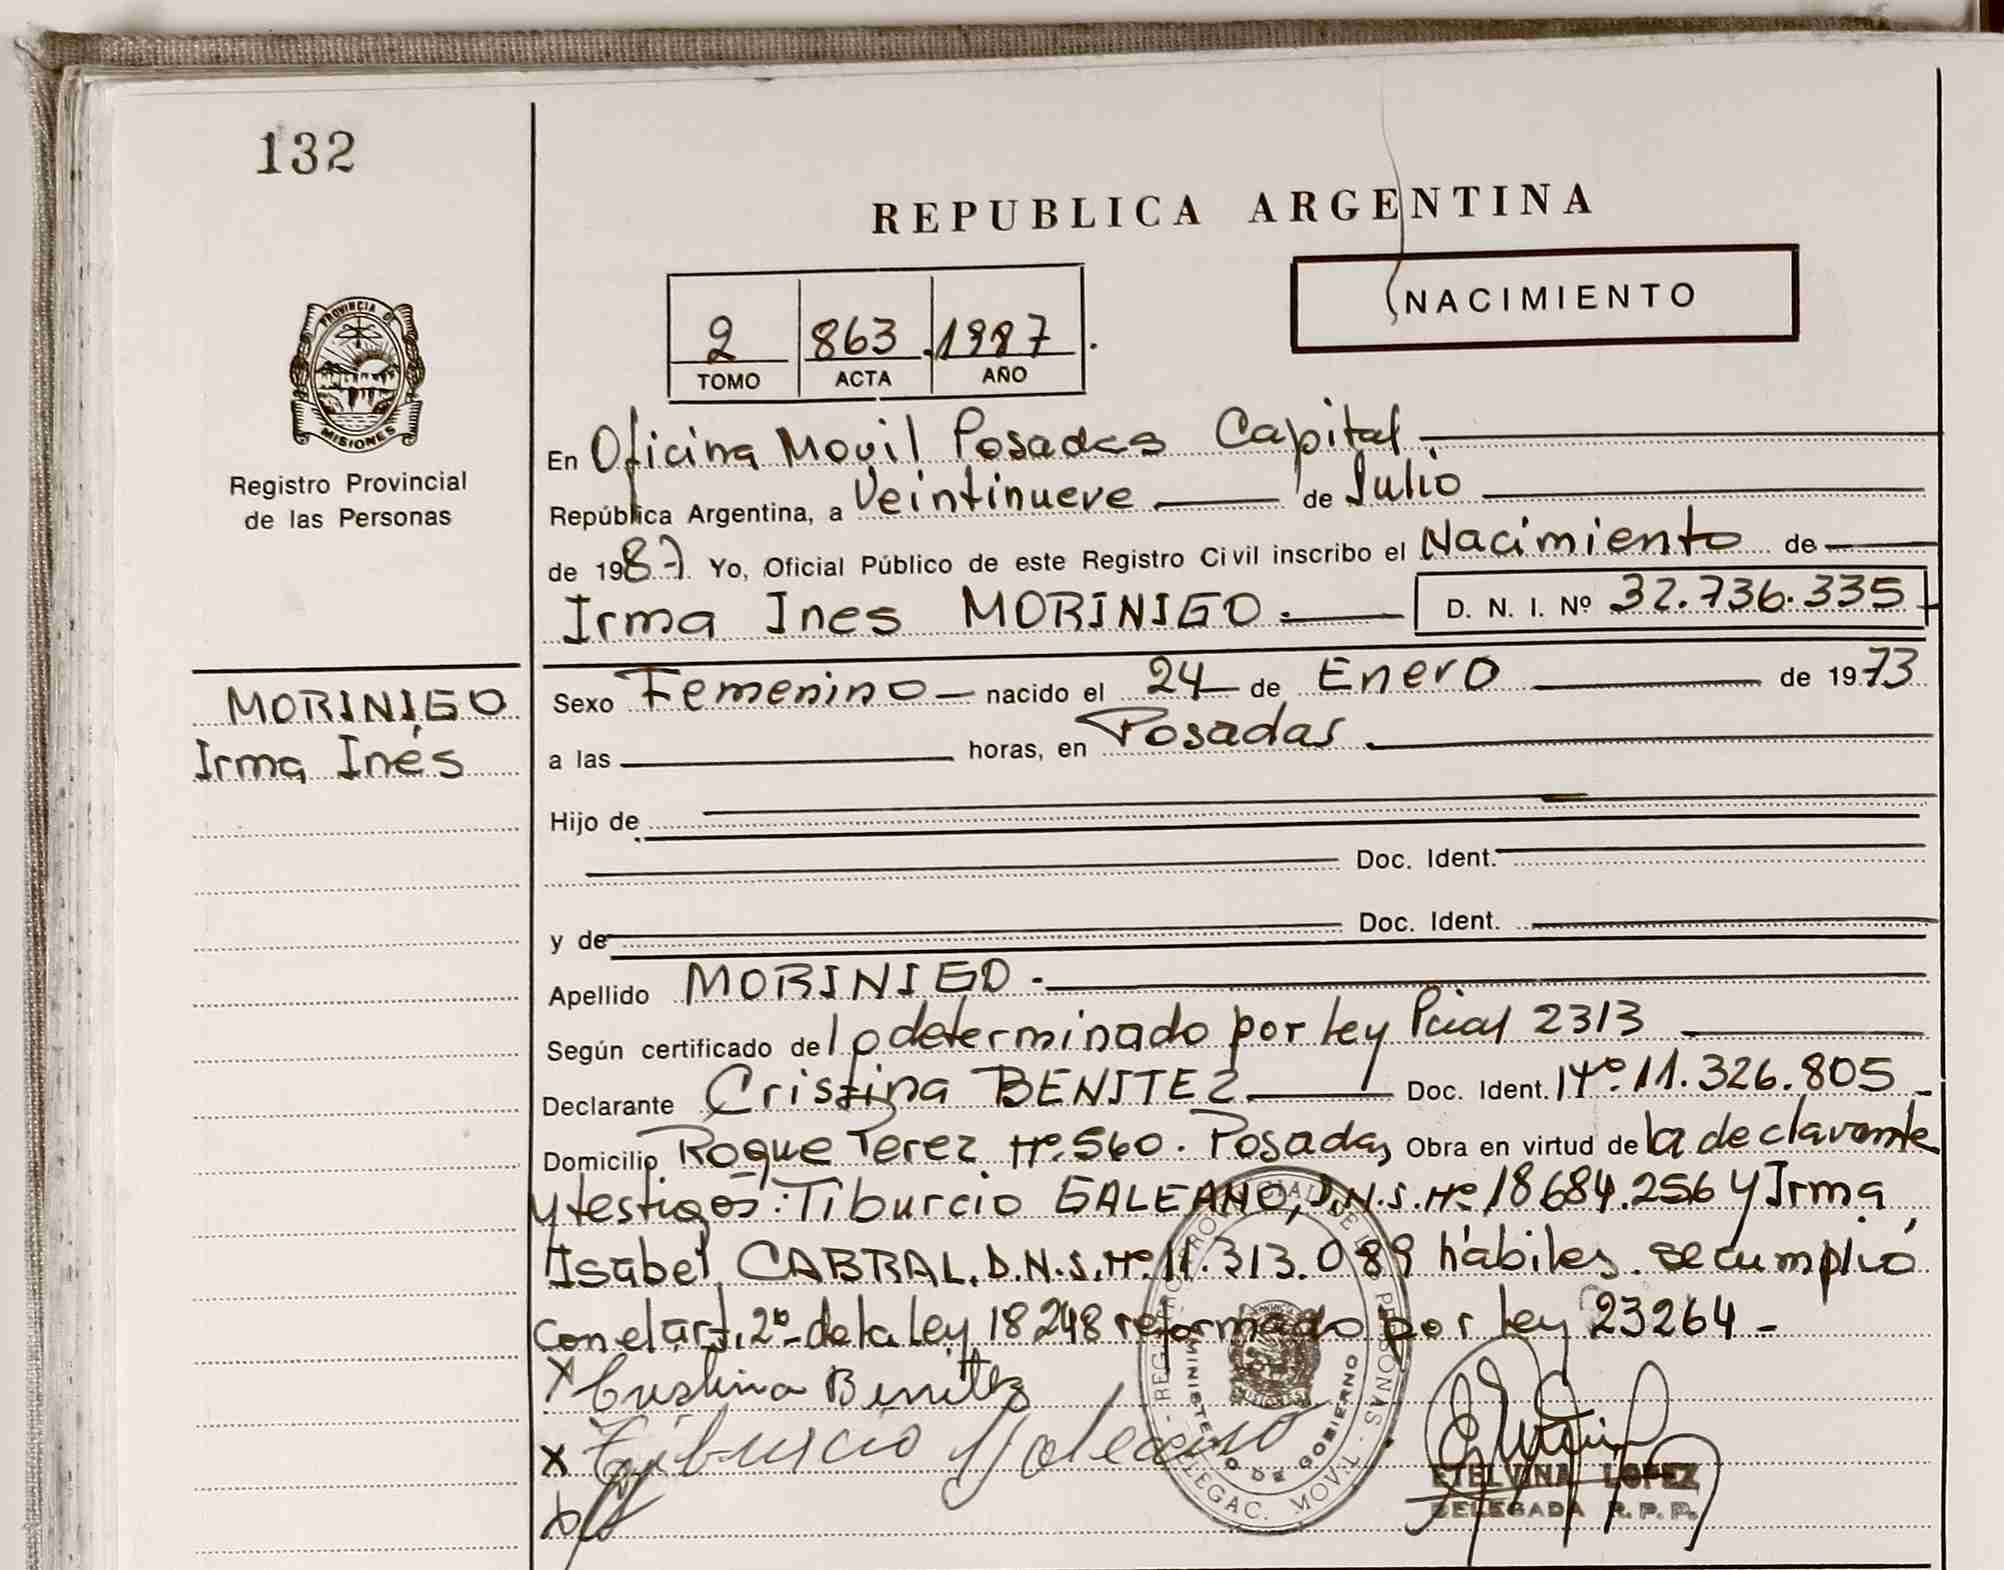 132
REPUBLICA ARGENTINA
NACIMIENTO
2 863 1987
TOMO ACTA AÑO
PROVINCIA D
MISIONES
Registro Provincial
de las Personas
En Oficina Movil Posadas Capital
República Argentina, a Veintinueve de Julio
de 1987. Yo, Oficial Público de este Registro Civil inscribo el Nacimiento de
Irma Ines MORINIGO.- D. N. I. Nº 32.736.335
MORINIGO
Irma Inés
Sexo Femenino nacido el 24 de Enero de 1973
a las horas, en Posadas
Hijo de
Doc. Ident.
y de Doc. Ident.
Apellido MORINIGO.-
Según certificado de lo determinado por Ley Pcial 2313
Declarante Cristina BENITEZ Doc. Ident. Nº.11.326.805
Domicilio Roque Perez Nº.560. Posadas Obra en virtud de la declarante
y testigos: Tiburcio GALEANO, D.N.I. Nº 18684.256 y Irma
Isabel CABRAL, D.N.I. Nº.11.313.089 hábiles. se cumplió
con el art. 2º- de la Ley 18248 reformado por Ley 23264 -
X Cristina Benitez
X Tiburcio Galeano
REG. PROVINCIAL DE LAS PERSONAS - DELEGAC. MOVIL -
MINISTERIO DE GOBIERNO
ETELVINA LOPEZ
DELEGADA R.P.P.